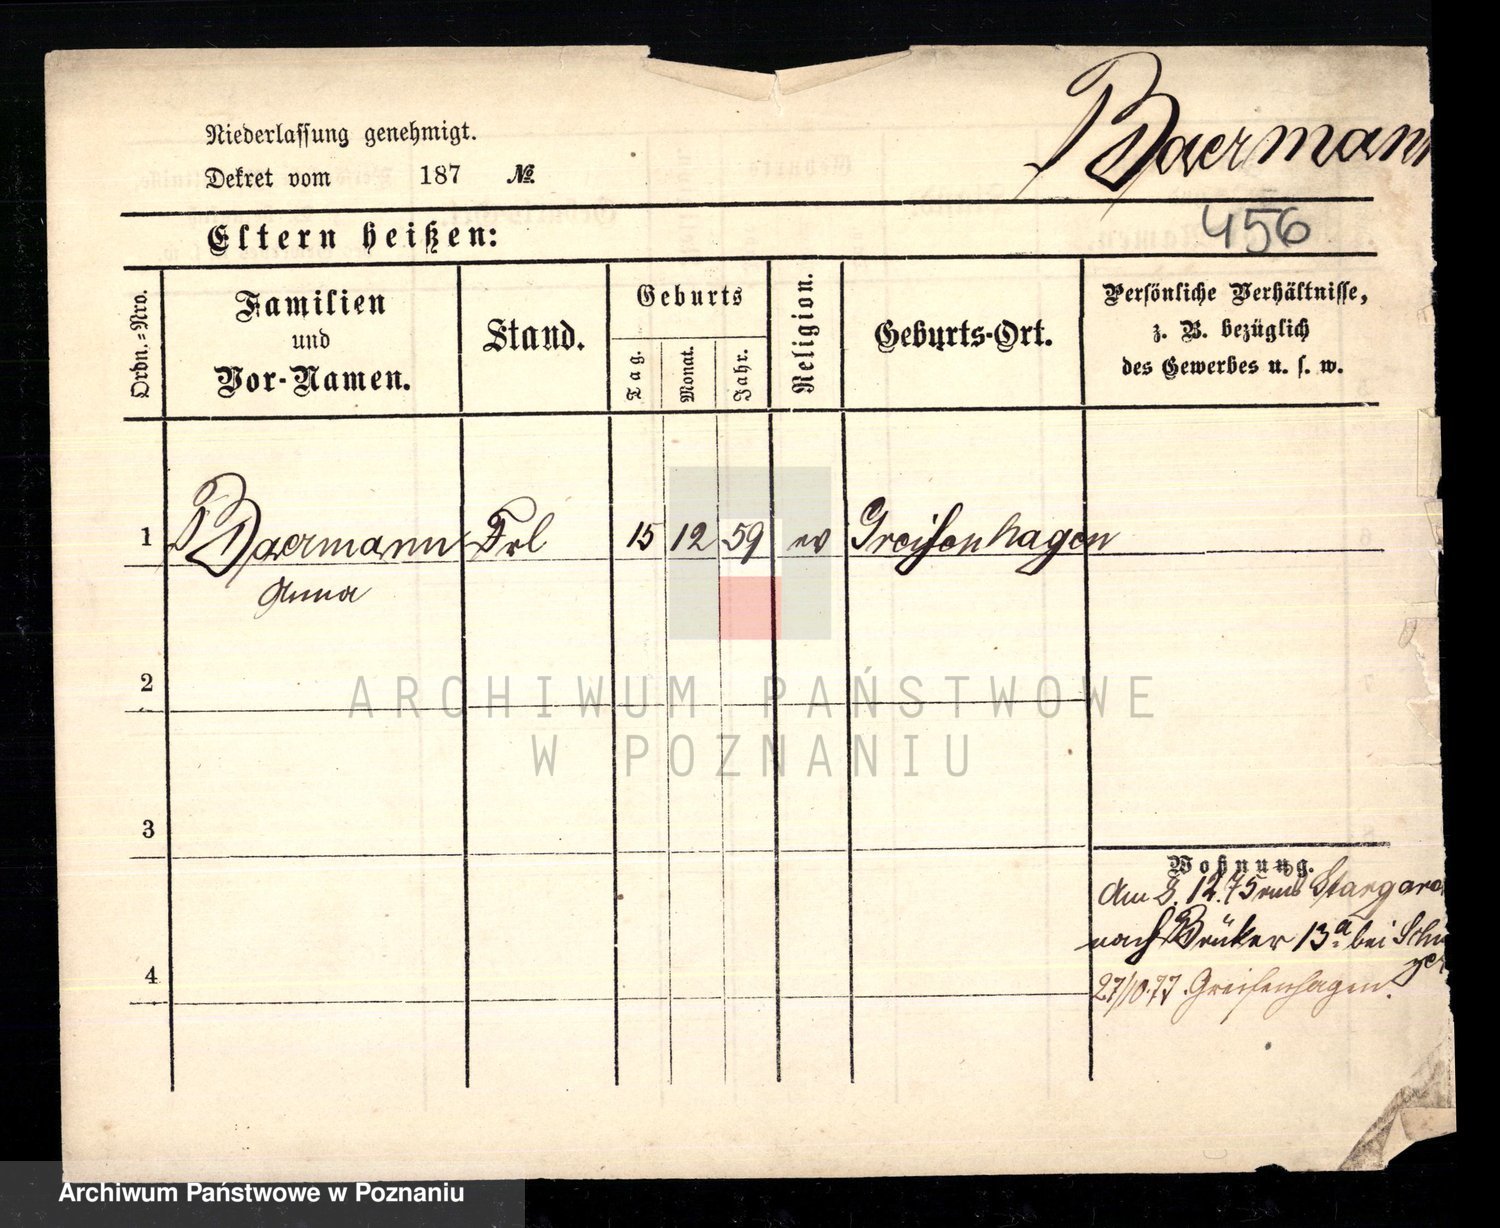 Baermann
Niederlassung genehmigt.
Dekret vom 187 №
456
Eltern heißen:
Ordn.=Nro.
Familien
und
Vor-Namen.
Stand.
Geburts
Tag.
Monat.
Jahr.
Religion.
Geburts-Ort.
Persönliche Verhältnisse,
z. B. bezüglich
des Gewerbes u. s. w.
1 Baermann Frl 15 12 59 ev Greifenhagen
Anna
2
ARCHIWUM PAŃSTWOWE
W POZNANIU
3
Wohnung.
Am 8. 12. 75 aus Stargard
nach Brüker 13a bei
4
27/10.77. Greifenhagen.
Archiwum Państwowe w Poznaniu